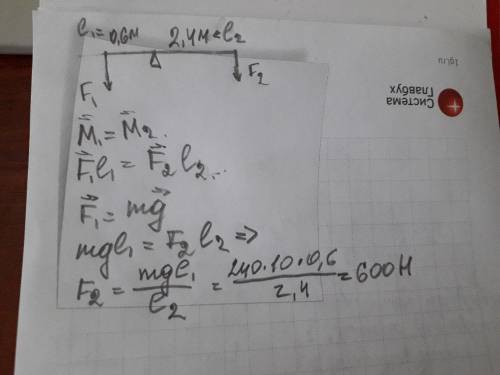 l₁=0,6м 2,4м=l₂
F₁ F₂
M⃗₁=M⃗₂.
F⃗₁l₁ = F⃗₂l₂..
F⃗₁ = mg⃗
mgl₁ = F₂l₂ =>
F₂ = mgl₁/l₂ = 240·10·0,6/2,4 = 600Н
Система
Главбух
1gl.ru